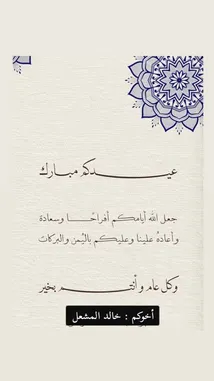 عيدكم مبارك
جعل الله أيامكم أفراحًا وسعادة
وأعادهُ علينا وعليكم باليُمن والبركات
وكل عام وأنتم بخير
أخوكم : خالد المشعل